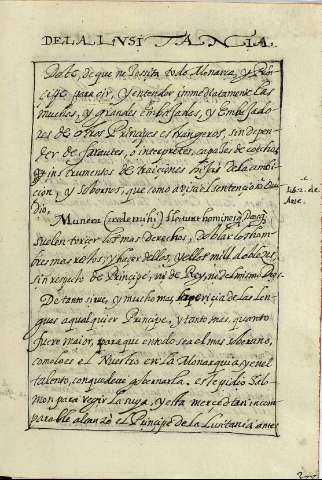 DE LA LUSI TANIA.
Dote, de que neçessita todo Monarca, y Prin
cipe para oir, y entender immediatamente las
muchas, y grandes embajadas, y Embajado
res de otros Principes estrangeros, sin depen
der de farautes, o interpretes, capaces de cohechos
instrumentos de traiciones hijas de la ambi
cion, y sobornos, que como avisa el sentencioso Ou
dio,
Lib. 2. de
Arte.
Munera (crede mihi) placant hominesque Deosque
suelen torcer los mas derechos, doblar los hom
bres mas rectos, y hazer dellos, y ellos mil dobleces,
sin respecto de Principe, ni de Rey, ni del mismo Dios.
De tanto sirue, y mucho mas la pericia de las len
guas a qualquier Principe, y tanto mas, quanto
fuere maior, para que en todo sea el mas soberano,
como lo es el Nuestro en la Monarquia, y en el
talento, con que deue gobernarla. este pidio Salo
mon para regir la suya, y esta merced tan incom
parable alcanzo el Principe de la Lusitania antes